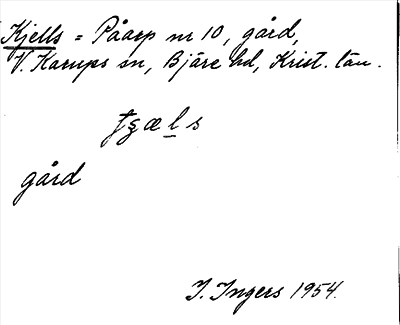 Kjells = Påarp nr 10, gård,
V. Karups sn, Bjäre hd, Krist. län.
gård
I. Ingers 1954.